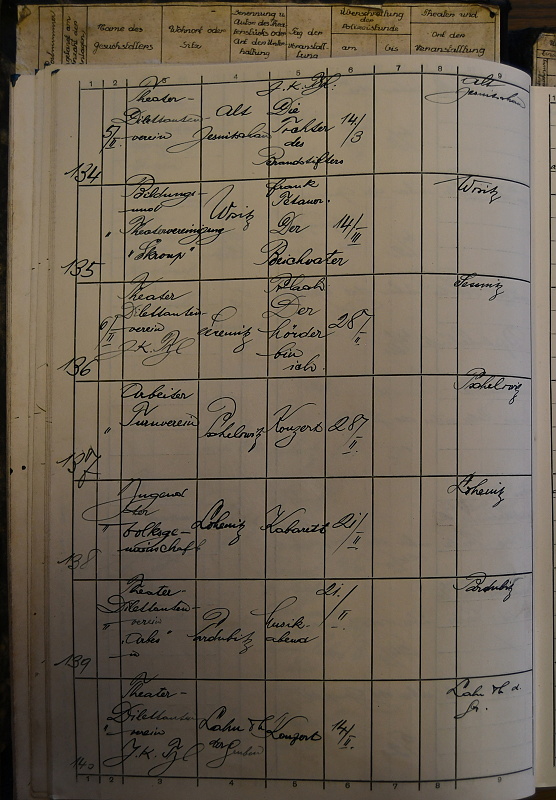 Name des
Gesuchstellers
Wohnort oder
Sitz
Benennung u.
Autor des Thea
terstücks oder
Art der Unter
haltung
Tag der
Veranstal-
tung
Überschreitung
der
Polizeistunde
am bis
Theater und
Ort der
Veranstaltung
1 2 3 4 5 6 7 8 9
134
5/II
Theater-
Dilettanten-
verein
Alt
Die
Tochter
des
Brandstifters
14/3
Alt
135
"
Bildungs-
und
Theatervereinigung
"Škroup"
Wositz
Frank
Der
Beichvater
14/III
Wositz
136
6/II
Theater
Dilettanten
verein
J.K. Tyl
Der
Mörder
bin
ich.
28/II
137
"
Arbeiter
Turnverein
Pschelowitz
Konzert
28/II
Pschelowitz
138
"
Jugend
der
Volksge-
meinschaft
Lohenitz
Kabarett
21/II
Lohenitz
139
"
Theater-
Dilettanten-
verein
"Arbes"
in
Pardubitz
Musik-
abend
21/II
Pardubitz
140
"
Theater-
Dilettanten
verein
J.K. Tyl
Konzert
14/II
1 2 3 4 5 6 7 8 9